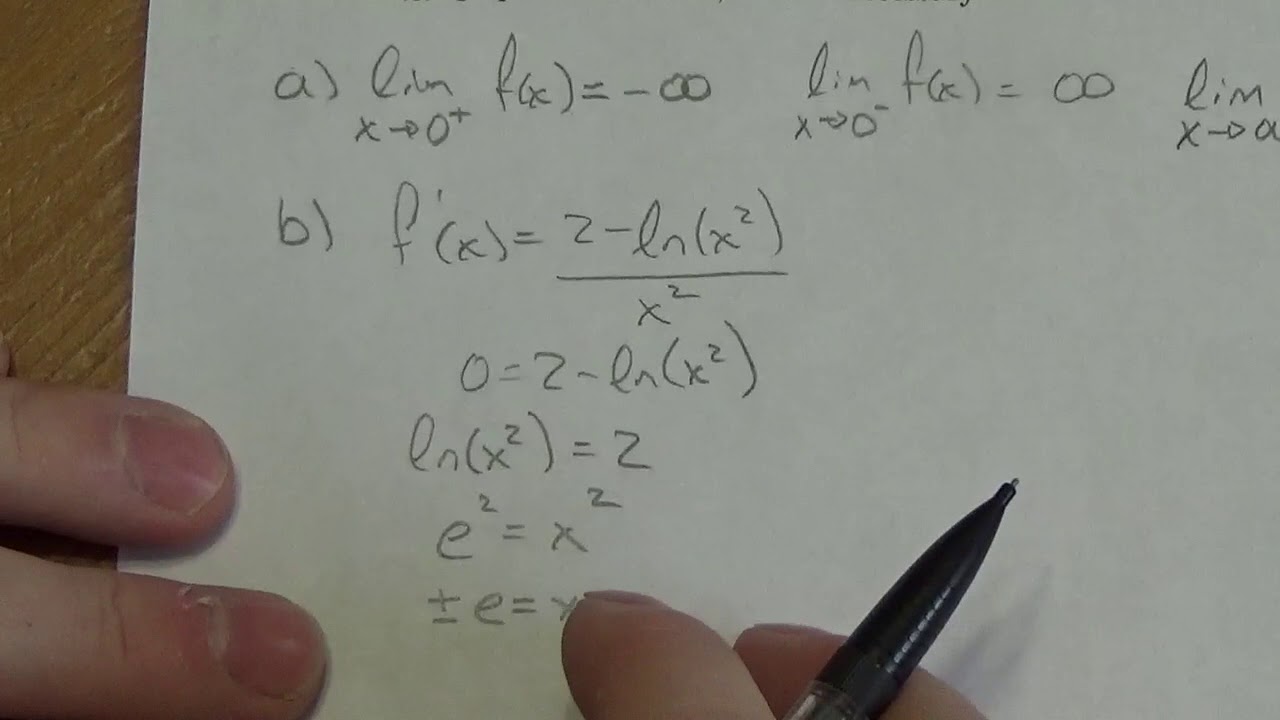 a) lim x→0⁺ f(x) = -∞ lim x→0⁻ f(x) = ∞ lim x→
b) f'(x) = 2-ln(x²) / x²
0 = 2-ln(x²)
ln(x²) = 2
e² = x²
± e = x